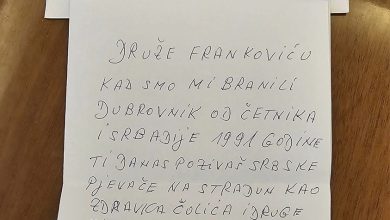 DRUŽE FRANKOVIĆU
KAD SMO MI BRANILI
DUBROVNIK OD ČETNIKA
I SRBADIJE 1991 GODINE
TI DANAS POZIVAŠ SRBSKE
PJEVAČE NA STRADUN KAO
ZDRAVKA ČOLIĆA I DRUGE